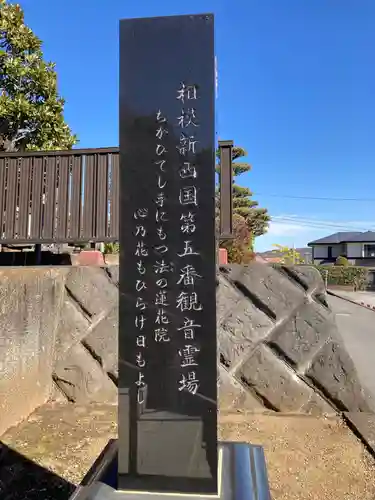 相模新西国第五番観音霊場
ちかひてし手にもつ法の蓮花院
心乃花もひらけ日もよし